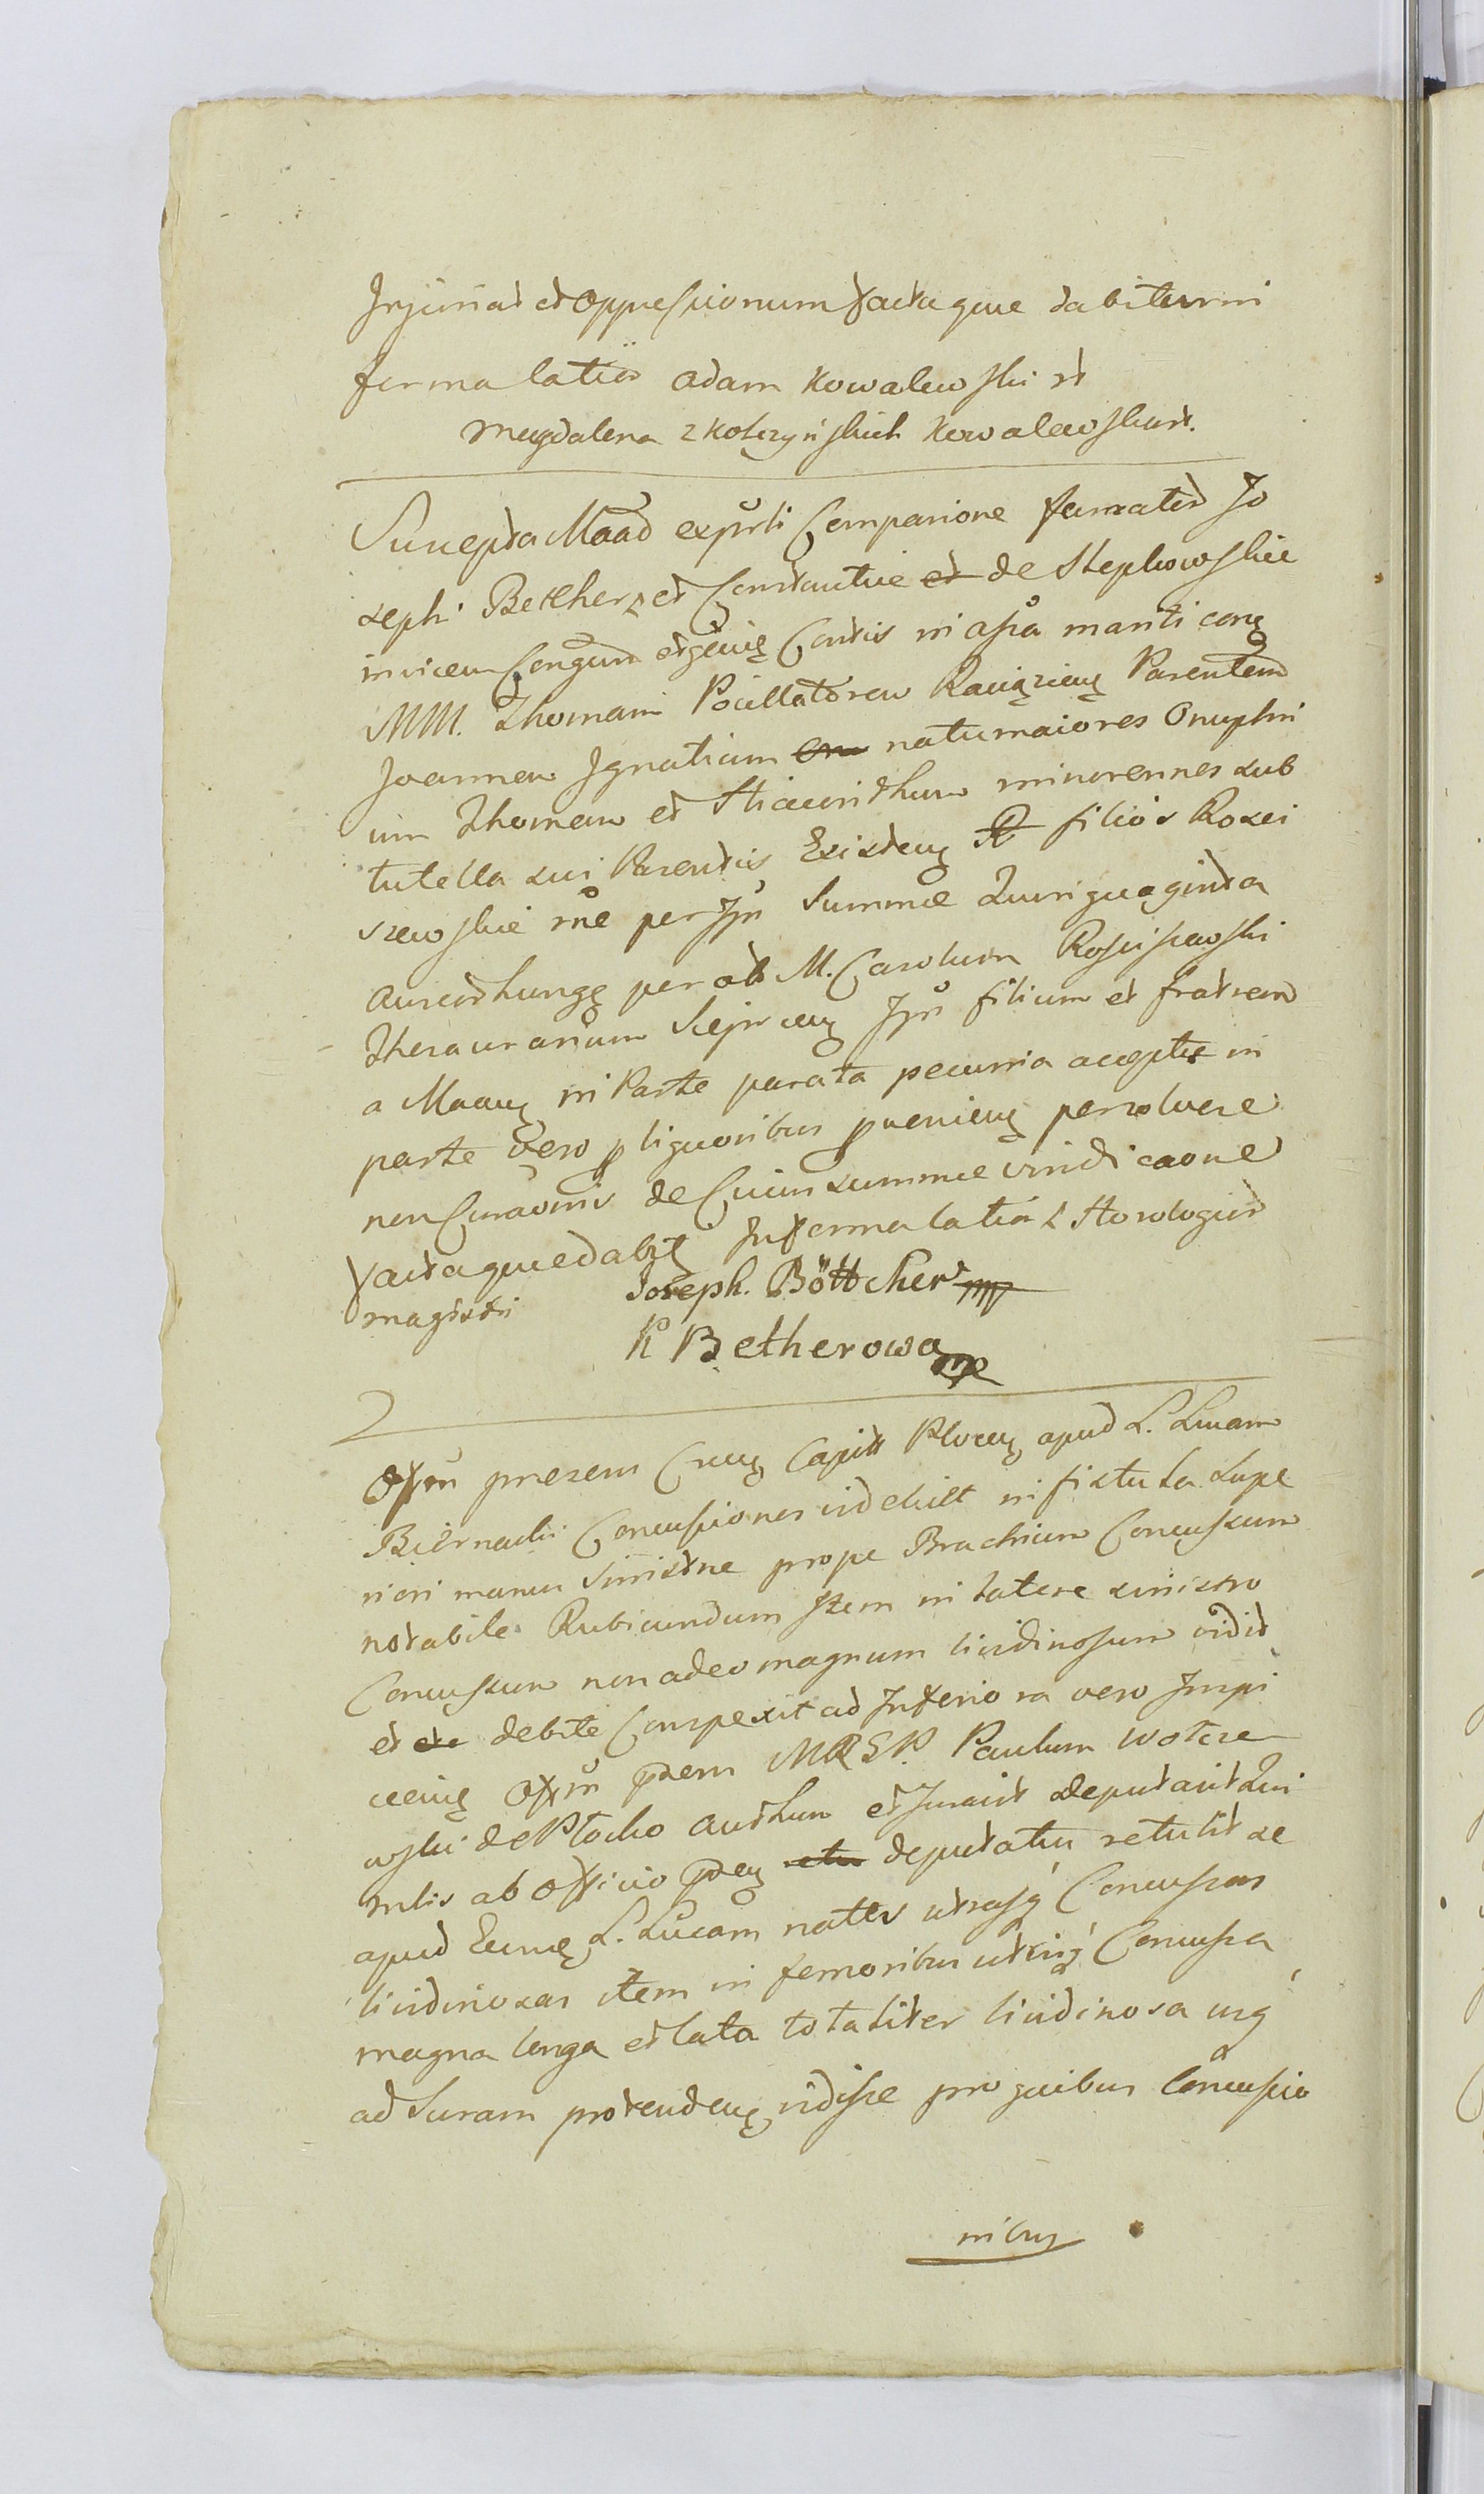 Injuriar et Oppressionum facta que dabitur in
ferma latior Adam Kowalewski et
Magdalena z Kolczyńskich Kowalewskart.
Suscepta Maad exprti Comparione famater Jo
seph Bether et Constantiae et de Stepkowskie
invicem Congum et genis Contis in assa mariti cons
MM. Thomam Pocillatorem Raciązien Parentem
Joannem Ignatium natu maiores Onuphri
um Thomam et Hiacinthum minorennes sub
tutella sui Parentis Existen filios Rosci
szewskie rne per Jpu Summae Quinquaginta
Aureor hung per ab M. Carolum Rosciszewski
Thesaurarium Sieprcen Jpn filium et fratrem
a Maan in Parte parata pecunia acceptae in
parte vero p liquoribus pvenien persolvere
non Curaonis de Cuius summae vindicaone
facta que dabit Informa latior Horologior
magistri Joseph. Böttcher mp
K Betherowa mp
Offm praesens Cren Capitt Plocen apud L. Lucam
Biernacki Concussiones vid elicet in fistula Supe
riori manus Sinistrae prope Brachium Concussum
notabile Rubicundum Item in latere sinistro
Concussum non adeo magnum lividinosum vidit
et debite Conspexit ad Inferiora vero Inspi
cien Offm pdem MRSP. Paulum Wolcze
wski de Plocko Authum et Jurait deputavit Qui
mlis ab Officio pden deputatus retulit se
apud Eund L. Lucam nates utrasq Concussas
lividinosas item in femoribus utrisq Concussa
magna longa et lata totaliter lividinosa usq
ad Suram protenden vidisse pro quibus Concussio
nibus